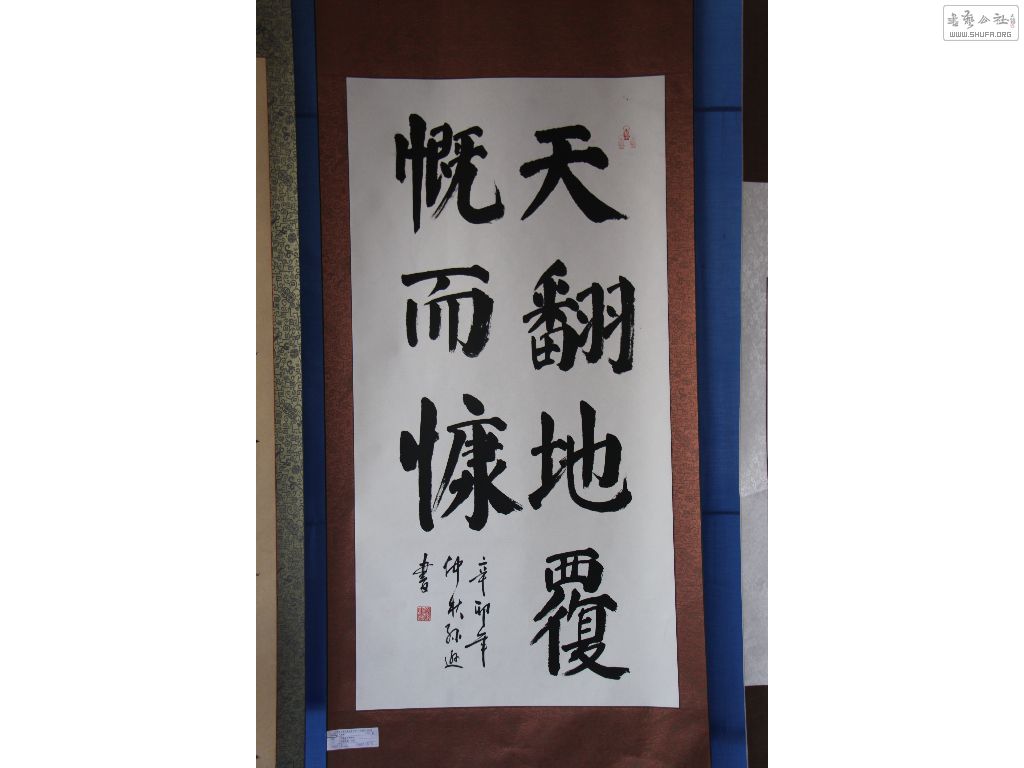 天翻地覆
慨而慷
辛卯年
仲秋孙逊
書
書藝公社
WWW.SHUFA.ORG